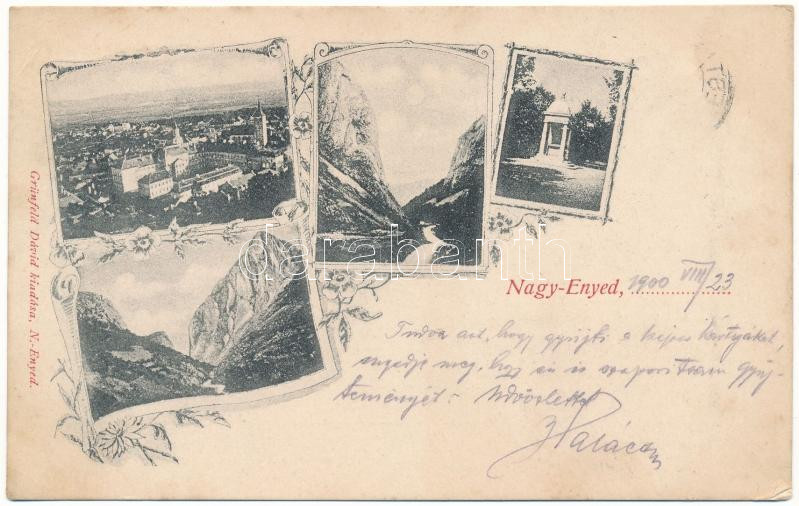 Grünfeld Dávid kiadása, N.-Enyed.
darabanth
Nagy-Enyed, 1900 VIII/23
Tudva azt, hogy gyűjti a képes kártyákat
engedje meg, hogy én is szaporítsam gyűj-
teményét. Üdvözlettel